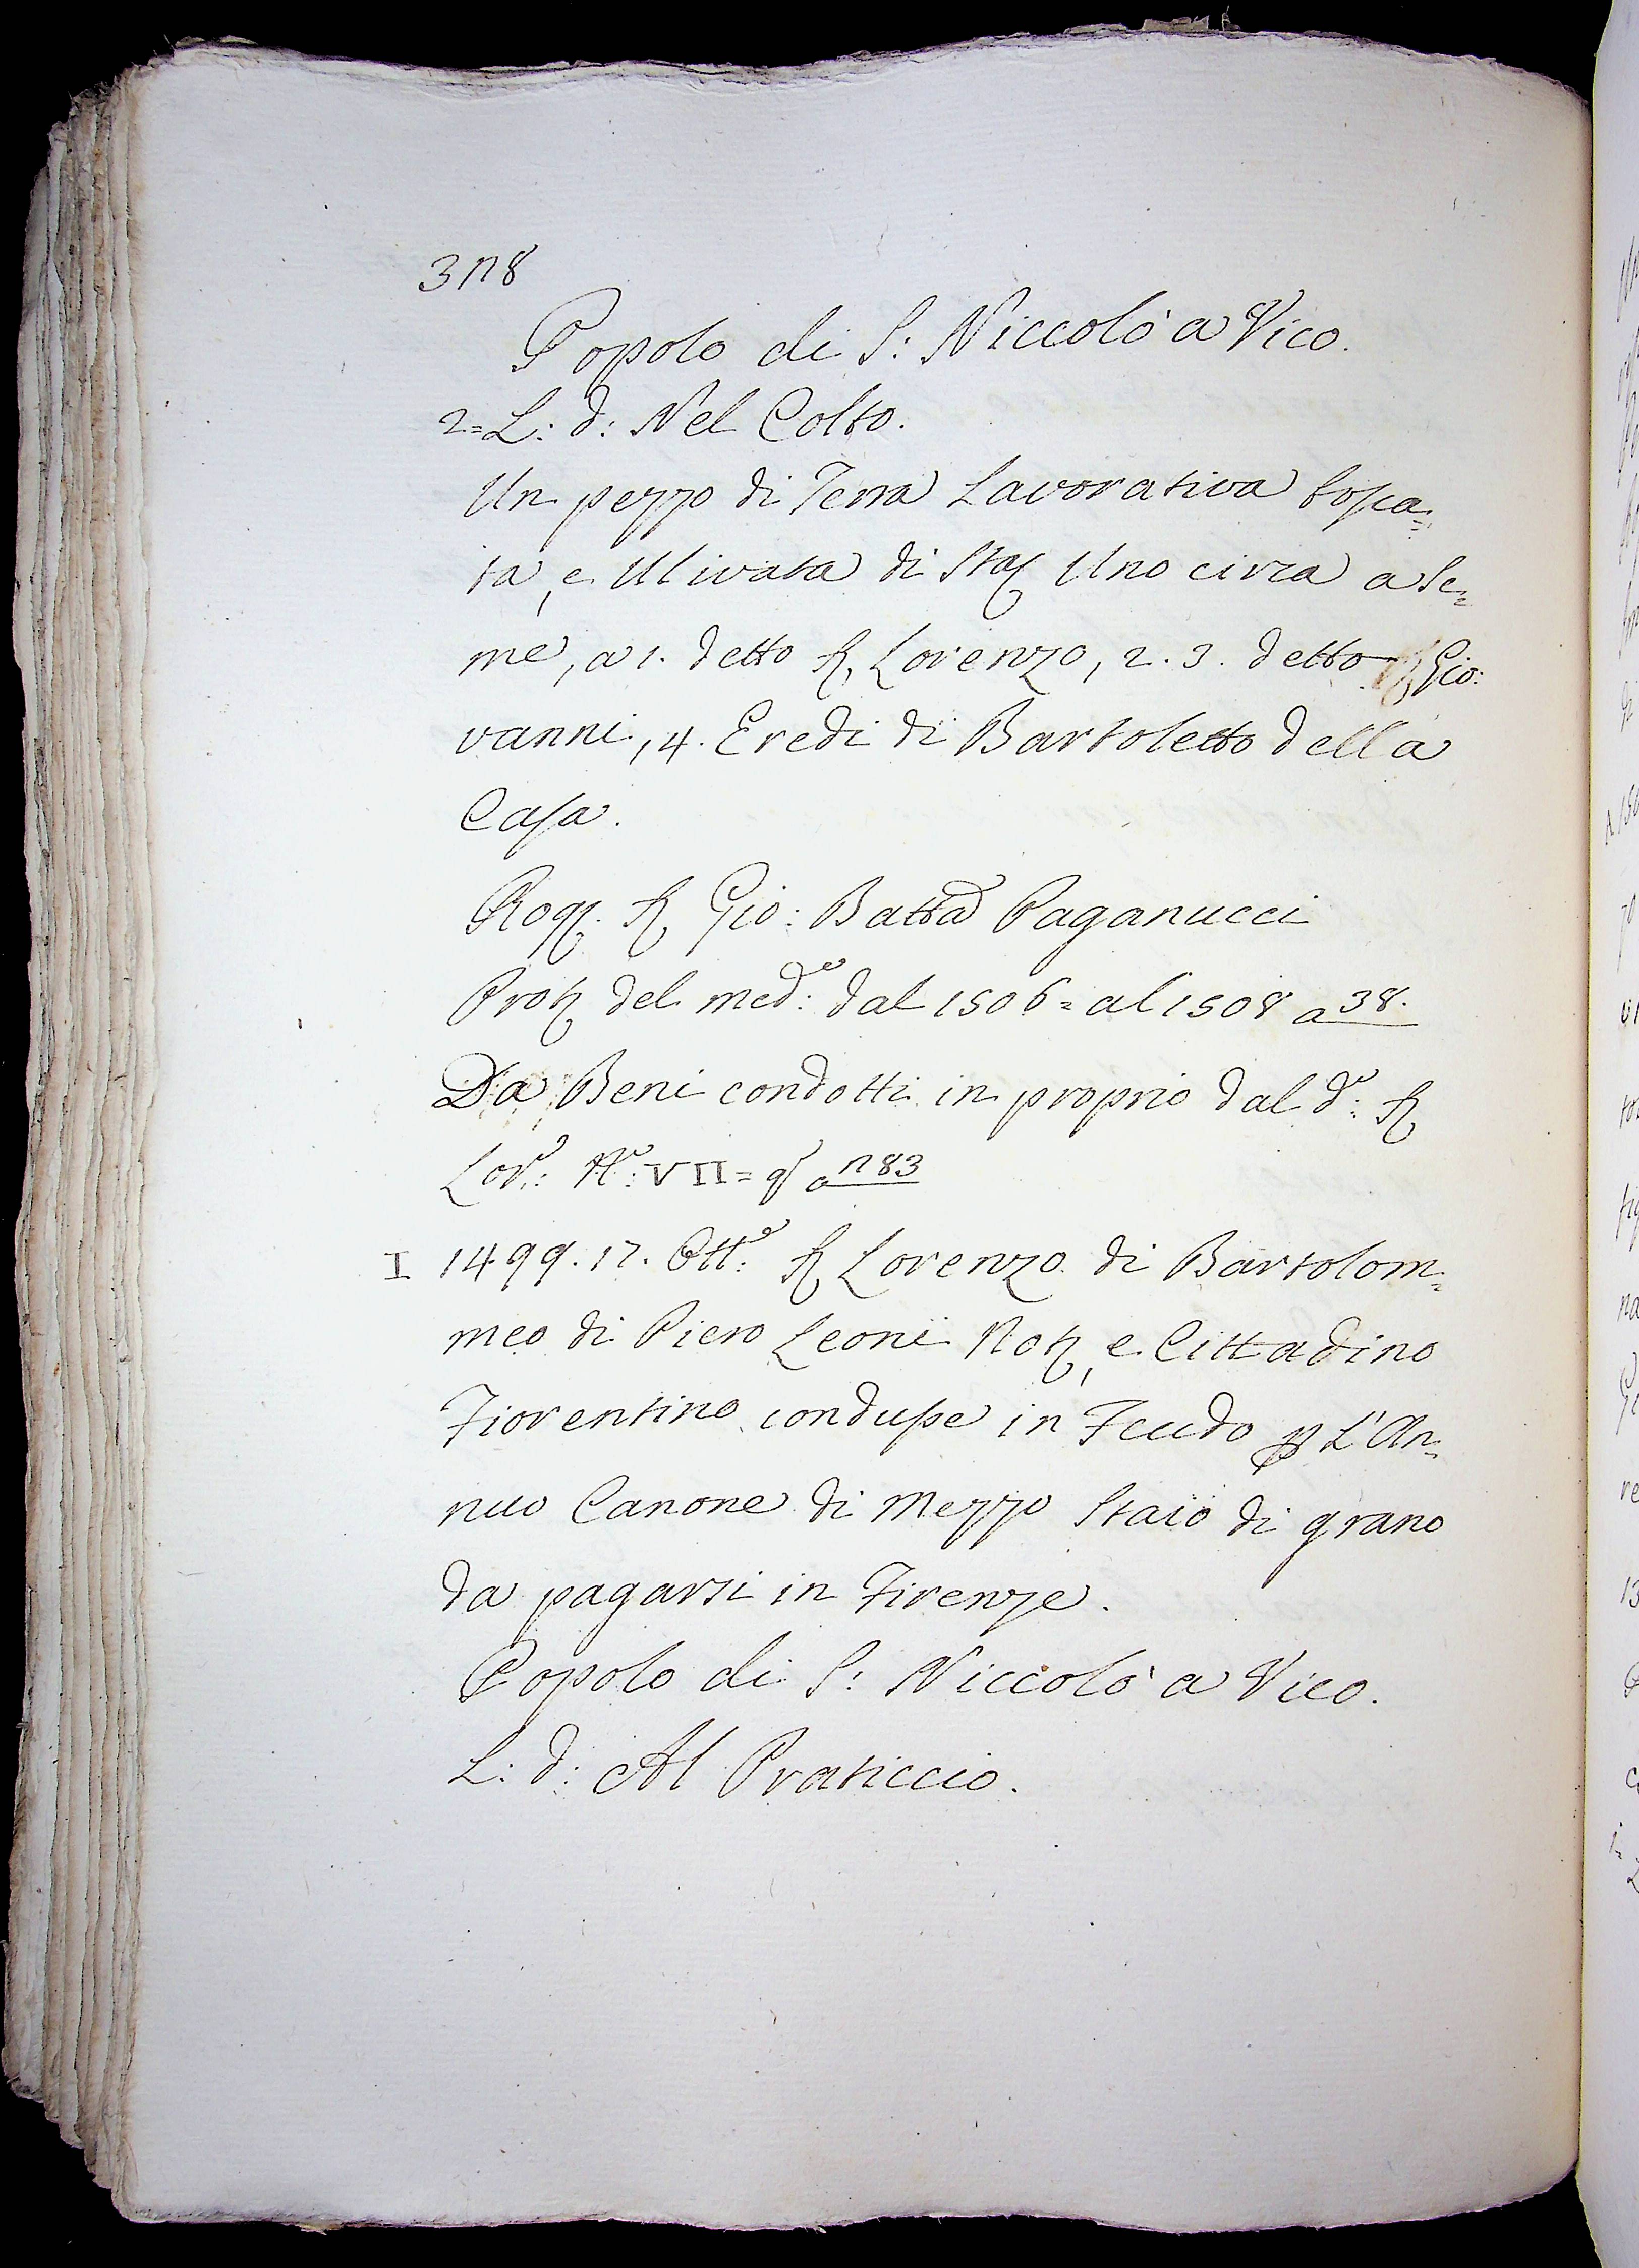 378
Popolo di S: Niccolò a Vico.
2= L: d: Nel Colto.
Un pezzo di Terra Lavorativa bosca=
ta, e Ulivata di Sta Uno circa a Se=
me, a 1. detto S. Lorenzo, 2. 3. detto Gio:
vanni, 4. Eredi di Bartoletto della
Casa.
Rog. S. Gio: Batta Paganucci
Prot. del med.e: dal 1506= al 1508 a 38.
Da Beni condotti in proprio dal d.o: S.
Lor.o: N.o: VII= a 783
I 1499. 17. Ott.e: S. Lorenzo di Bartolom=
meo di Piero Leoni Not., e Cittadino
Fiorentino condusse in Feudo p L'An=
nuo Canone di Mezzo Staio di grano
da pagarsi in Firenze.
Popolo di S: Niccolò a Vico.
L: d: Al Praticcio.